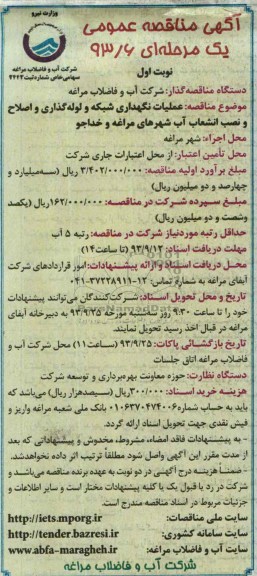 وزارت نیرو
شرکت آب و فاضلاب مراغه
سهامی خاص شماره ثبت ۴۴۶۲
آگهی مناقصه عمومی
یک مرحله‌ای ۹۳/۶
نوبت اول
دستگاه مناقصه‌گذار: شرکت آب و فاضلاب مراغه
موضوع مناقصه: عملیات نگهداری شبکه و لوله‌گذاری و اصلاح
و نصب انشعاب آب شهرهای مراغه و خداجو
محل اجراء: شهر مراغه
محل تأمین اعتبار: از محل اعتبارات جاری شرکت
مبلغ برآورد اولیه مناقصه: ۳/۴۰۲/۰۰۰/۰۰۰ ریال (سه‌میلیارد و
چهارصد و دو میلیون ریال)
مبلغ سپرده شرکت در مناقصه: ۱۶۲/۰۰۰/۰۰۰ریال (یکصد
وشصت و دو میلیون ریال)
حداقل رتبه موردنیاز شرکت در مناقصه: رتبه ۵ آب
مهلت دریافت اسناد: ۹۳/۹/۱۲ (تا ساعت۱۴)
محل دریافت اسناد و ارائه پیشنهادات: امور قراردادهای شرکت
آبفای مراغه به شماره تماس: ۱۲-۳۷۲۲۸۹۱۱-۰۴۱
تاریخ و محل تحویل اسناد: شرکت‌کنندگان می‌توانند پیشنهادات
خود را تا ساعت ۹:۳۰ روز سه‌شنبه مورخه ۹۳/۹/۲۵ به دبیرخانه آبفای
مراغه در قبال اخذ رسید تحویل نمایند.
تاریخ بازگشائی پاکات: ۹۳/۹/۲۵ (ساعت۱۱) محل شرکت آب و
فاضلاب مراغه اتاق جلسات
دستگاه نظارت: حوزه معاونت بهره‌برداری و توسعه شرکت
هزینه خرید اسناد: ۳۰۰/۰۰۰ریال (سیصدهزار ریال) می‌باشد که
باید به حساب شماره ۰۱۰۶۳۷۰۴۷۴۰۰۶ بانک ملی شعبه مراغه واریز و
فیش نقدی جهت تحویل اسناد ارائه گردد.
- به پیشنهادات فاقد امضاء، مشروط، مخدوش و پیشنهاداتی که بعد
از مدت مقرر این آگهی واصل شود مطلقاً ترتیب اثر داده نخواهدشد.
- ضمناً هزینه درج آگهی در دو نوبت به عهده برنده مناقصه می‌باشد و
شرکت در رد یا قبول یک یا کلیه پیشنهادات مختار است و سایر اطلاعات و
جزئیات مربوط در اسناد مناقصه مندرج است.
سایت ملی مناقصات: http://iets.mporg.ir
سایت سامانه کشوری: http://tender.bazresi.ir
سایت آب و فاضلاب مراغه: www.abfa-maragheh.ir
شرکت آب و فاضلاب مراغه